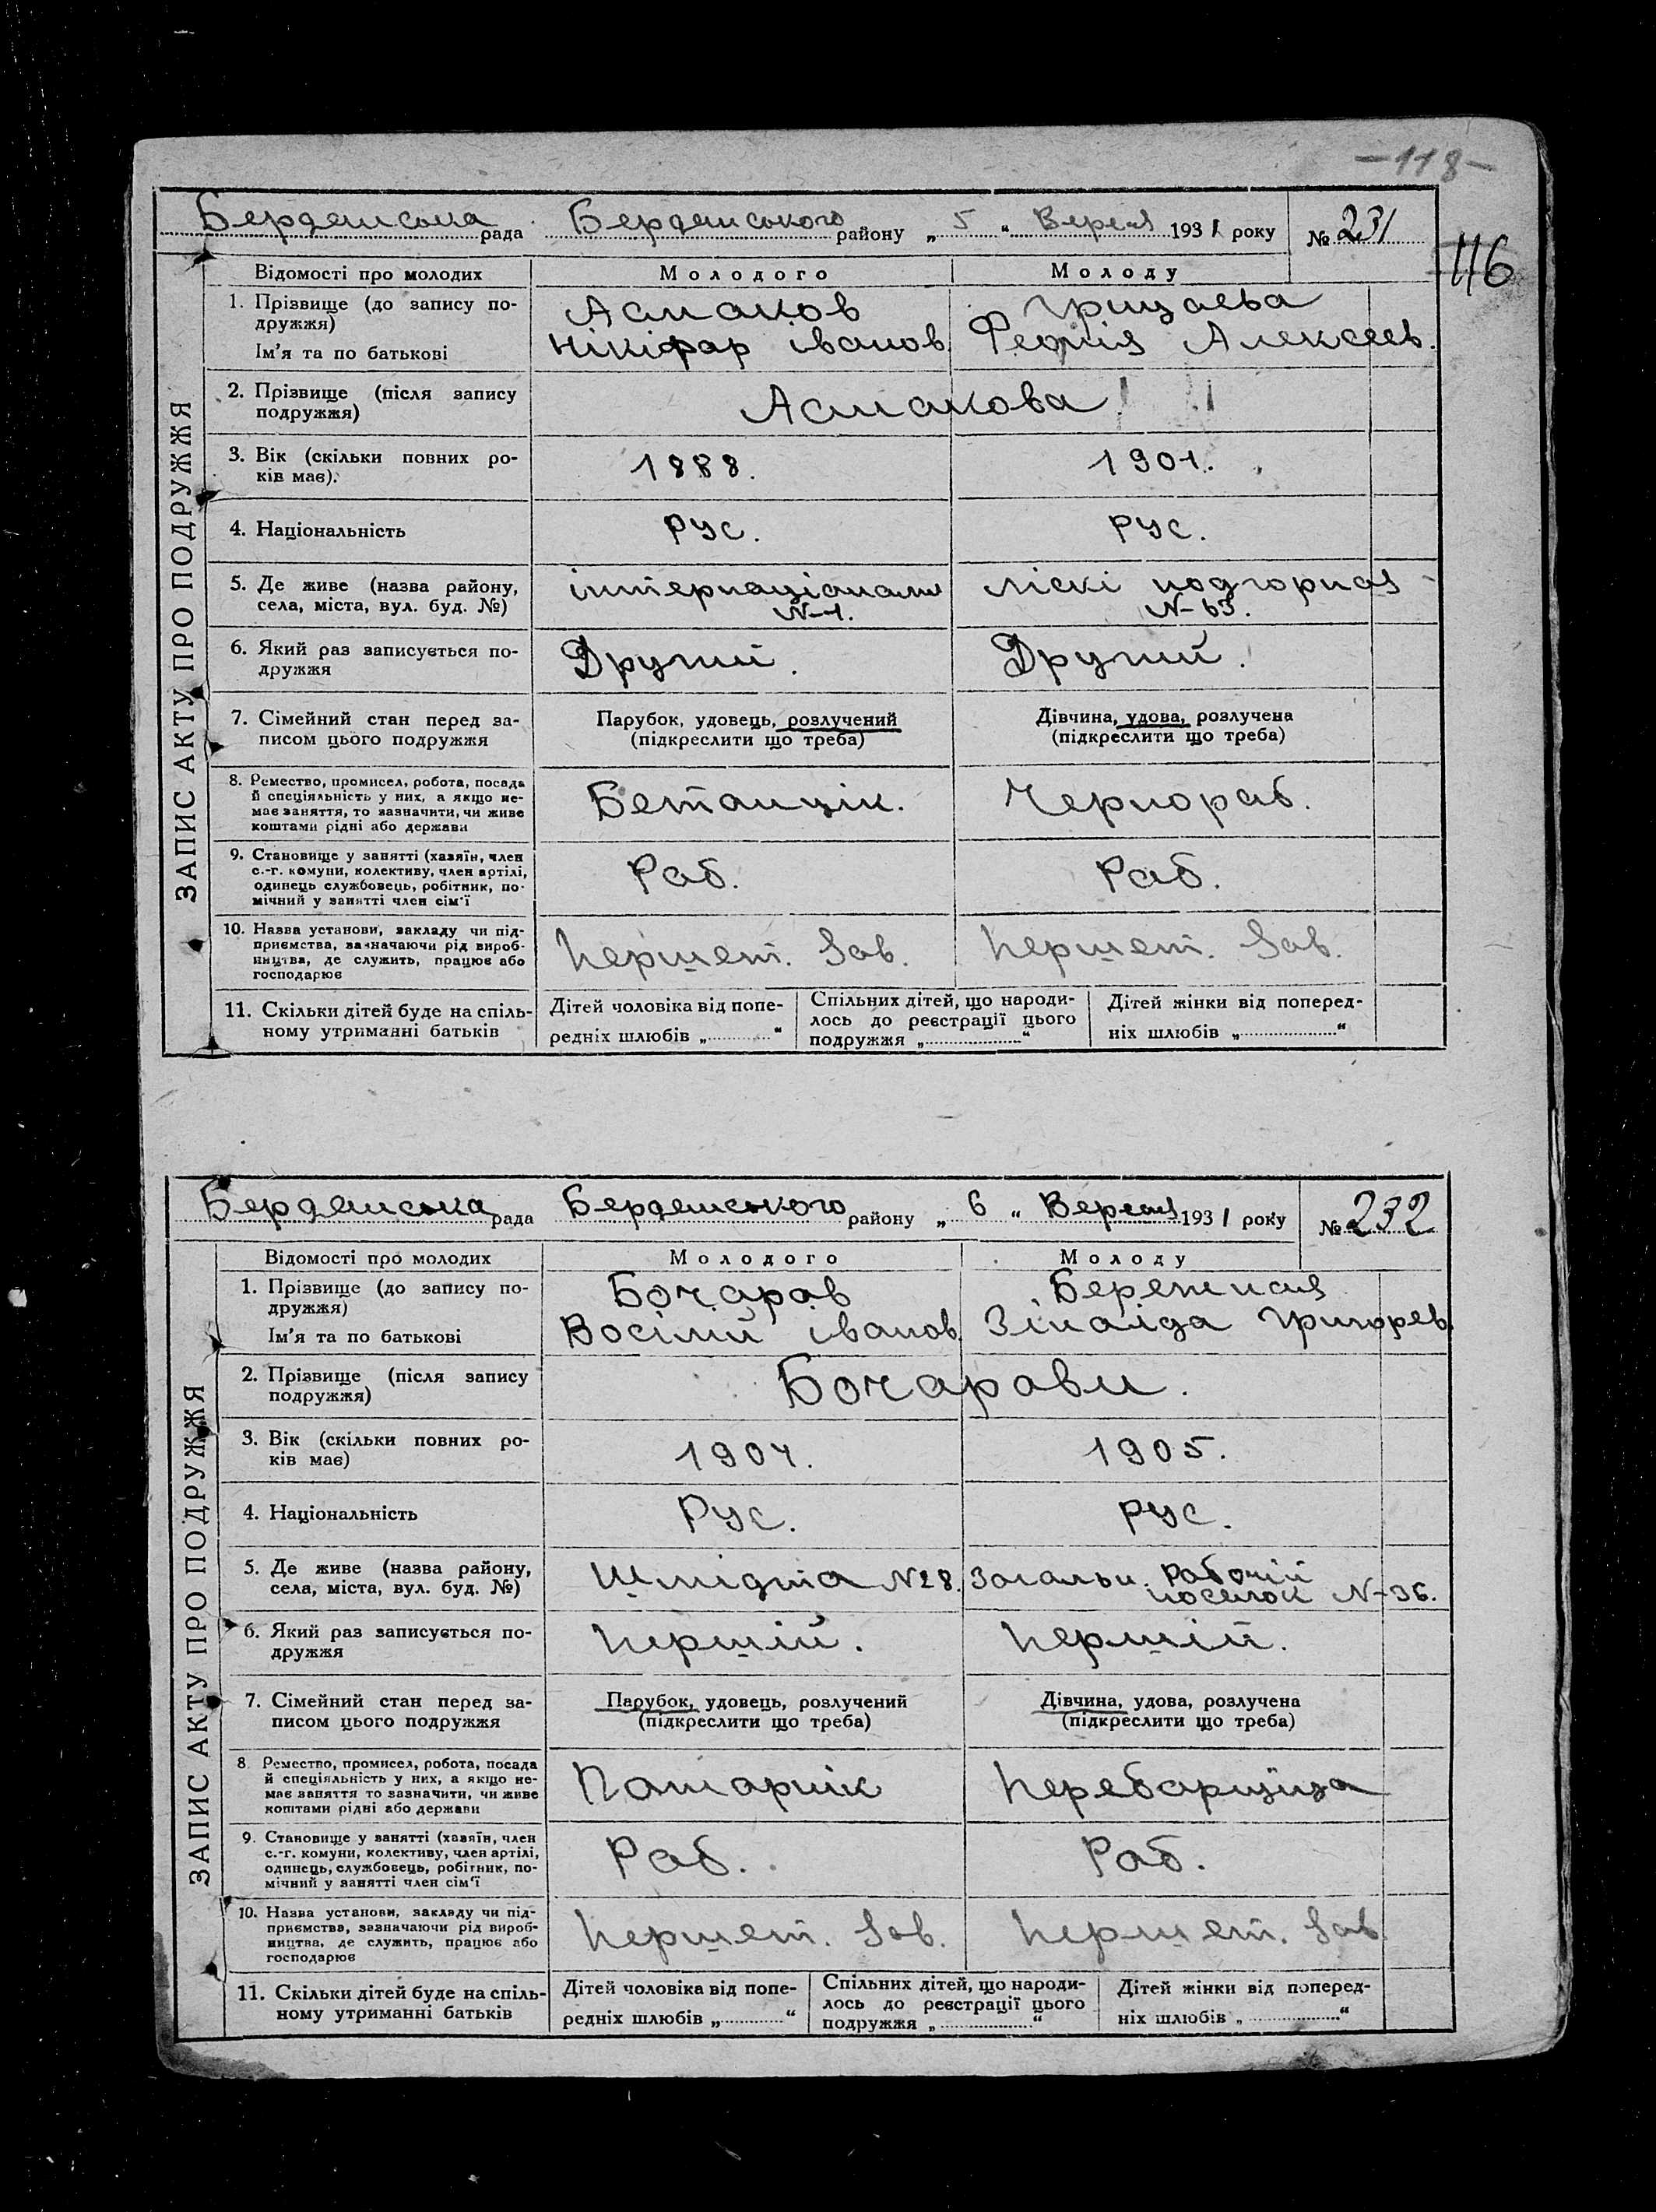 -118-
116
Бердянська рада Бердянського району „ 5 “ Вересня 1931 року № 231
ЗАПИС АКТУ ПРО ПОДРУЖЖЯ
Відомості про молодих Молодого Молоду
1. Прізвище (до запису по-
дружжя)
Асмаков Грицаева
Ім'я та по батькові Нікіфар іванов. Алексеев.
2. Прізвище (після запису
подружжя)
Асмакова
3. Вік (скільки повних ро-
ків має).
1888. 1901.
4. Національність рус. рус.
5. Де живе (назва району,
села, міста, вул. буд. №)
інтернаціональ ліскі подгорная
N-1. N-63.
6. Який раз записується по-
дружжя
Другий. Другий.
7. Сімейний стан перед за-
писом цього подружжя
Парубок, удовець, розлучений
(підкреслити що треба)
Дівчина, удова, розлучена
(підкреслити що треба)
8. Ремество, промисел, робота, посада
й спеціяльність у них, а якщо не-
має заняття, то зазначити, чи живе
коштами рідні або держави
Бетанщік. Чернораб.
9. Становище у занятті (хазяїн, член
с.-г. комуни, колективу, член артілі,
одинець службовець, робітник, по-
мічний у занятті член сім'ї
Раб. Раб.
10. Назва установи, закладу чи під-
приємства, зазначаючи рід вироб-
ництва, де служить, працює або
господарює
Першет. Зав. Першет. Зав.
11. Скільки дітей буде на спіль-
ному утриманні батьків
Дітей чоловіка від попе-
редніх шлюбів „............“
Спільних дітей, що народи-
лось до реєстрації цього
подружжя „..................“
Дітей жінки від поперед-
ніх шлюбів „..................“
Бердянська рада Бердянського району „ 6 “ Вересня 1931 року № 232
ЗАПИС АКТУ ПРО ПОДРУЖЖЯ
Відомості про молодих Молодого Молоду
1. Прізвище (до запису по-
дружжя)
Бочаров Бережная
Ім'я та по батькові Восілий іванов. Зінаіда Григорев.
2. Прізвище (після запису
подружжя)
Бочарови.
3. Вік (скільки повних ро-
ків має)
1904. 1905.
4. Національність Рус. рус.
5. Де живе (назва району,
села, міста, вул. буд. №)
Шмідта N28. Загальн. рабочій
поселок N-36.
6. Який раз записується по-
дружжя
Першій. Першій.
7. Сімейний стан перед за-
писом цього подружжя
Парубок, удовець, розлучений
(підкреслити що треба)
Дівчина, удова, розлучена
(підкреслити що треба)
8 Ремество, промисел, робота, посада
й спеціяльність у них, а якщо не-
має заняття то зазначити, чи живе
коштами рідні або держави
Перебарщіца
9. Становище у занятті (хазяїн, член
с.-г. комуни, колективу, член артілі,
одинець, службовець, робітник, по-
мічний у занятті член сім'ї
Раб. Раб.
10. Назва установи, закладу чи під-
приємства, зазначаючи рід вироб-
ництва, де служить, працює або
господарює
Першет. Зав. Першет. Зав.
11. Скільки дітей буде на спіль-
ному утриманні батьків
Дітей чоловіка від попе-
редніх шлюбів „............“
Спільних дітей, що народи-
лось до реєстрації цього
подружжя „..................“
Дітей жінки від поперед-
ніх шлюбів „..................“